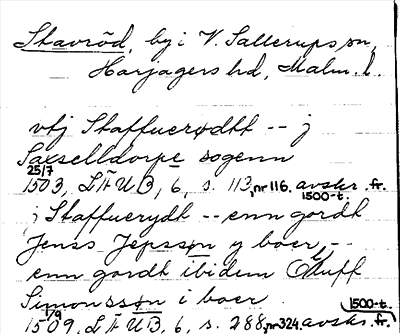 Stavröd, by i V. Sallerups sn,
Harjagers hd, Malm. l.
vtj Staffuerødtt -- j
Saxselldorpe sogenn
25/7
1503, LÄUB, 6, s. 113, nr 116. avskr. fr.
1500-t.
j Staffuerydt -- enn gordt
Jenss Jepssøn y boer, --
enn gordt ibidem Auff
Simonssøn i boer
1/9 1500-t.
1509, LÄUB, 6, s. 288, nr 324. avskr. fr.